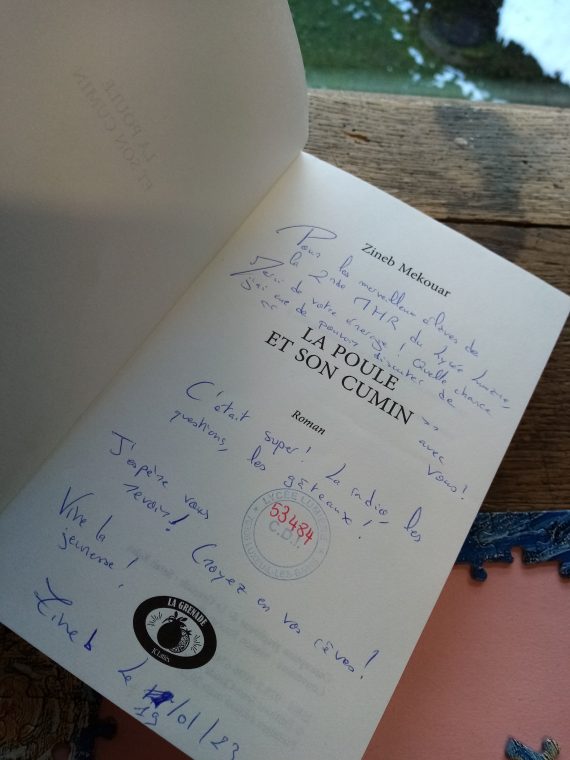 Zineb Mekouar
Pour les merveilleux élèves de
la 2nde MHR du Lycée Lumière,
Merci de votre énergie ! Quelle chance
j'ai eue de pouvoir discuter de
LA POULE
ET SON CUMIN
Roman
<< >> avec
vous !
C'était super ! La radio, les
questions, les gâteaux !
J'espère vous
revoir ! Croyez en vos rêves !
Vive la
jeunesse !
LYCEE LUMIERE
53484
C.D.I.
LA GRENADE
Zineb
Le /01/23
19
LA POULE
ET SON CUMIN